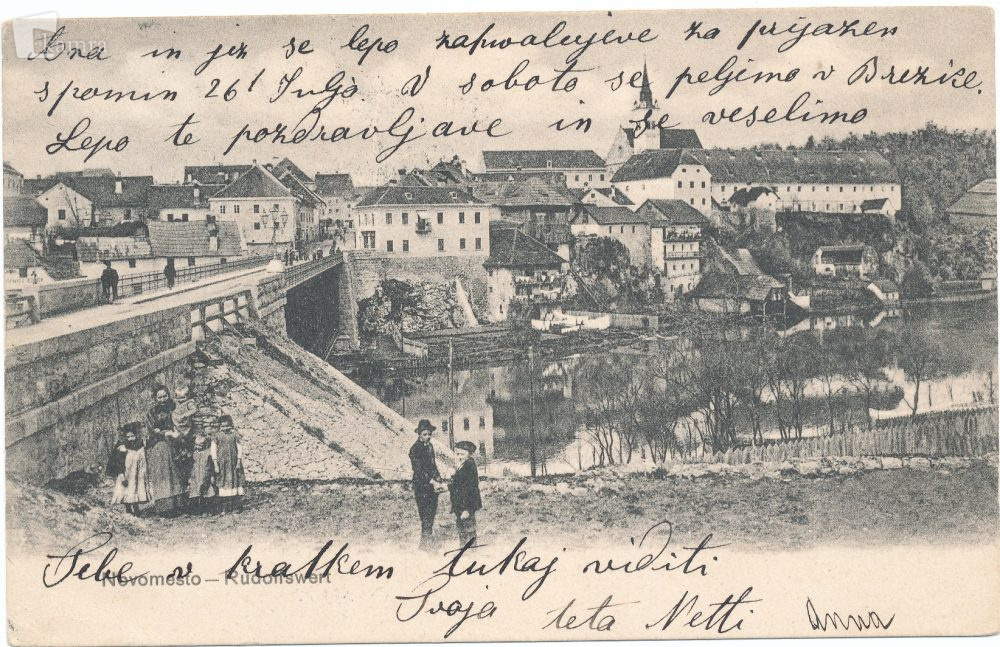 Ana in jez se lepo zahvalujeve za prijazen
spomin 26t Julja V soboto se peljemo v Brežice.
Lepo te pozdravljave in se veselimo
Tebe v kratkem tukaj viditi
Novomesto – Rudolfswert
Tvoja teta Netti Anna